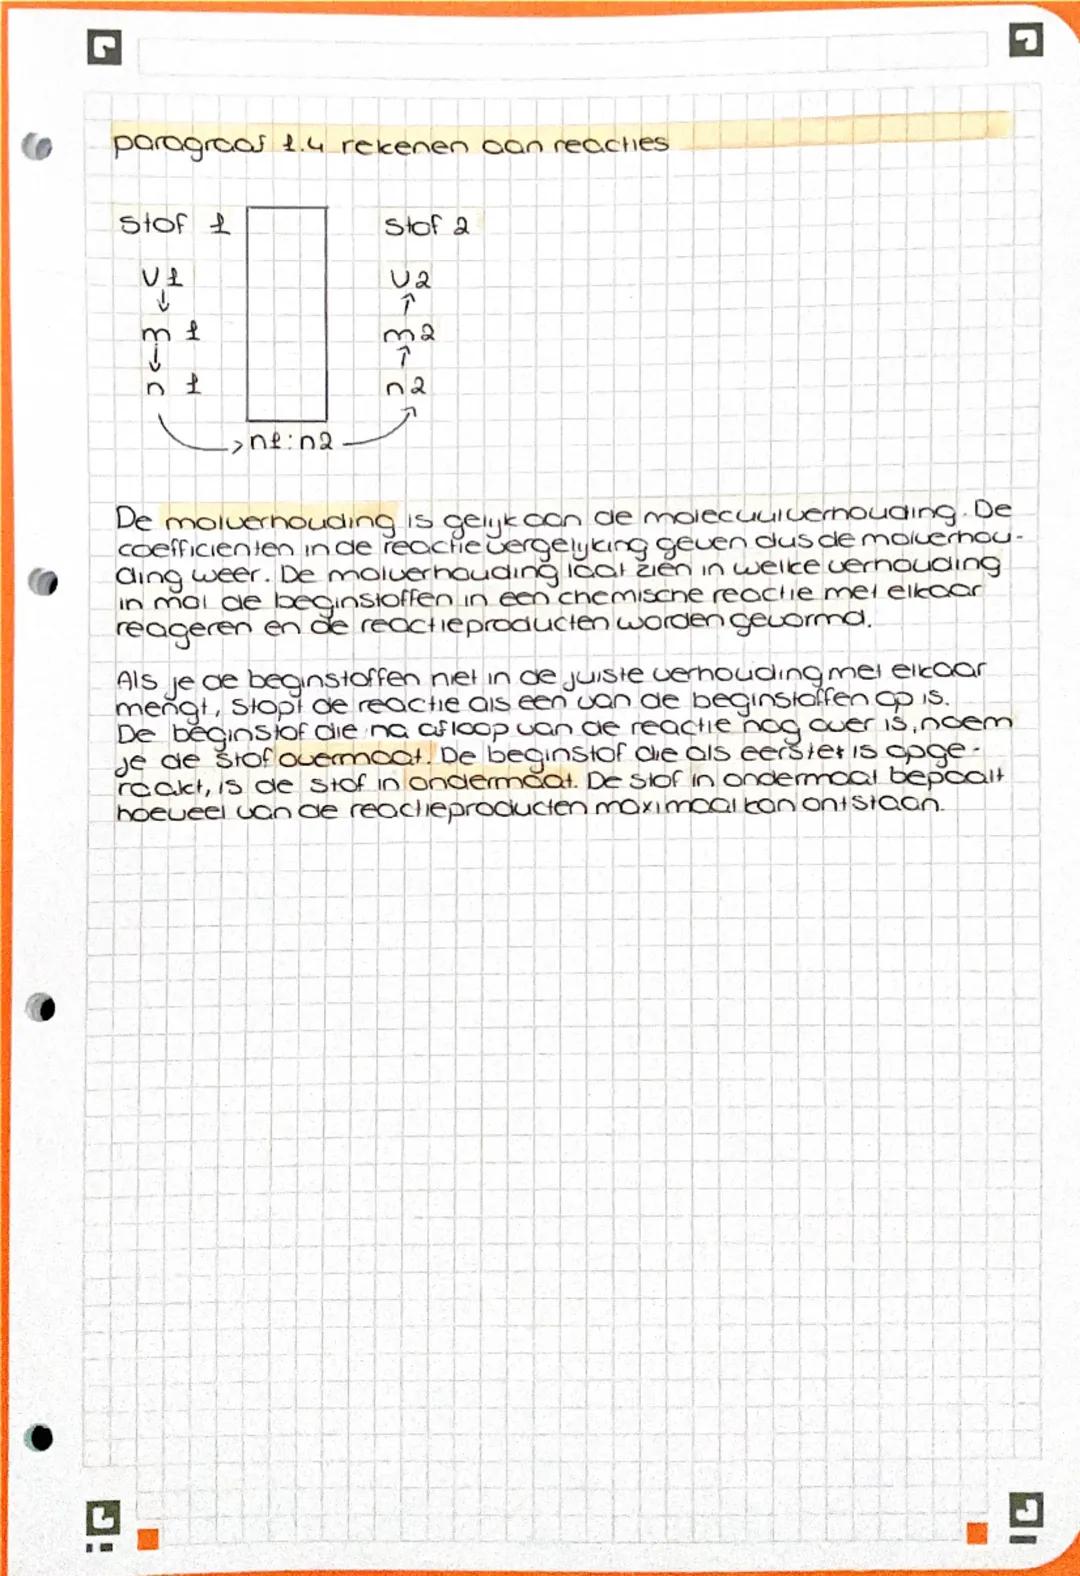 paragraaf 1.4 rekenen aan reacties
Stof 1 Stof 2
V1 V2
m 1 m2
n 1 n2
n1:n2
De molverhouding is gelijk aan de molecuulverhouding. De
coefficienten in de reactievergelijking geven dus de molverhou-
ding weer. De molverhouding laat zien in welke verhouding
in mol de beginstoffen in een chemische reactie met elkaar
reageren en de reactieproducten worden gevormd.
Als je de beginstoffen niet in de juiste verhouding met elkaar
mengt, stopt de reactie als een van de beginstoffen op is.
De beginstof die na afloop van de reactie nog over is, noem
je de stof overmaat. De beginstof die als eerste is opge-
raakt, is de stof in ondermaat. De stof in ondermaat bepaalt
hoeveel van de reactieproducten maximaal kan ontstaan.